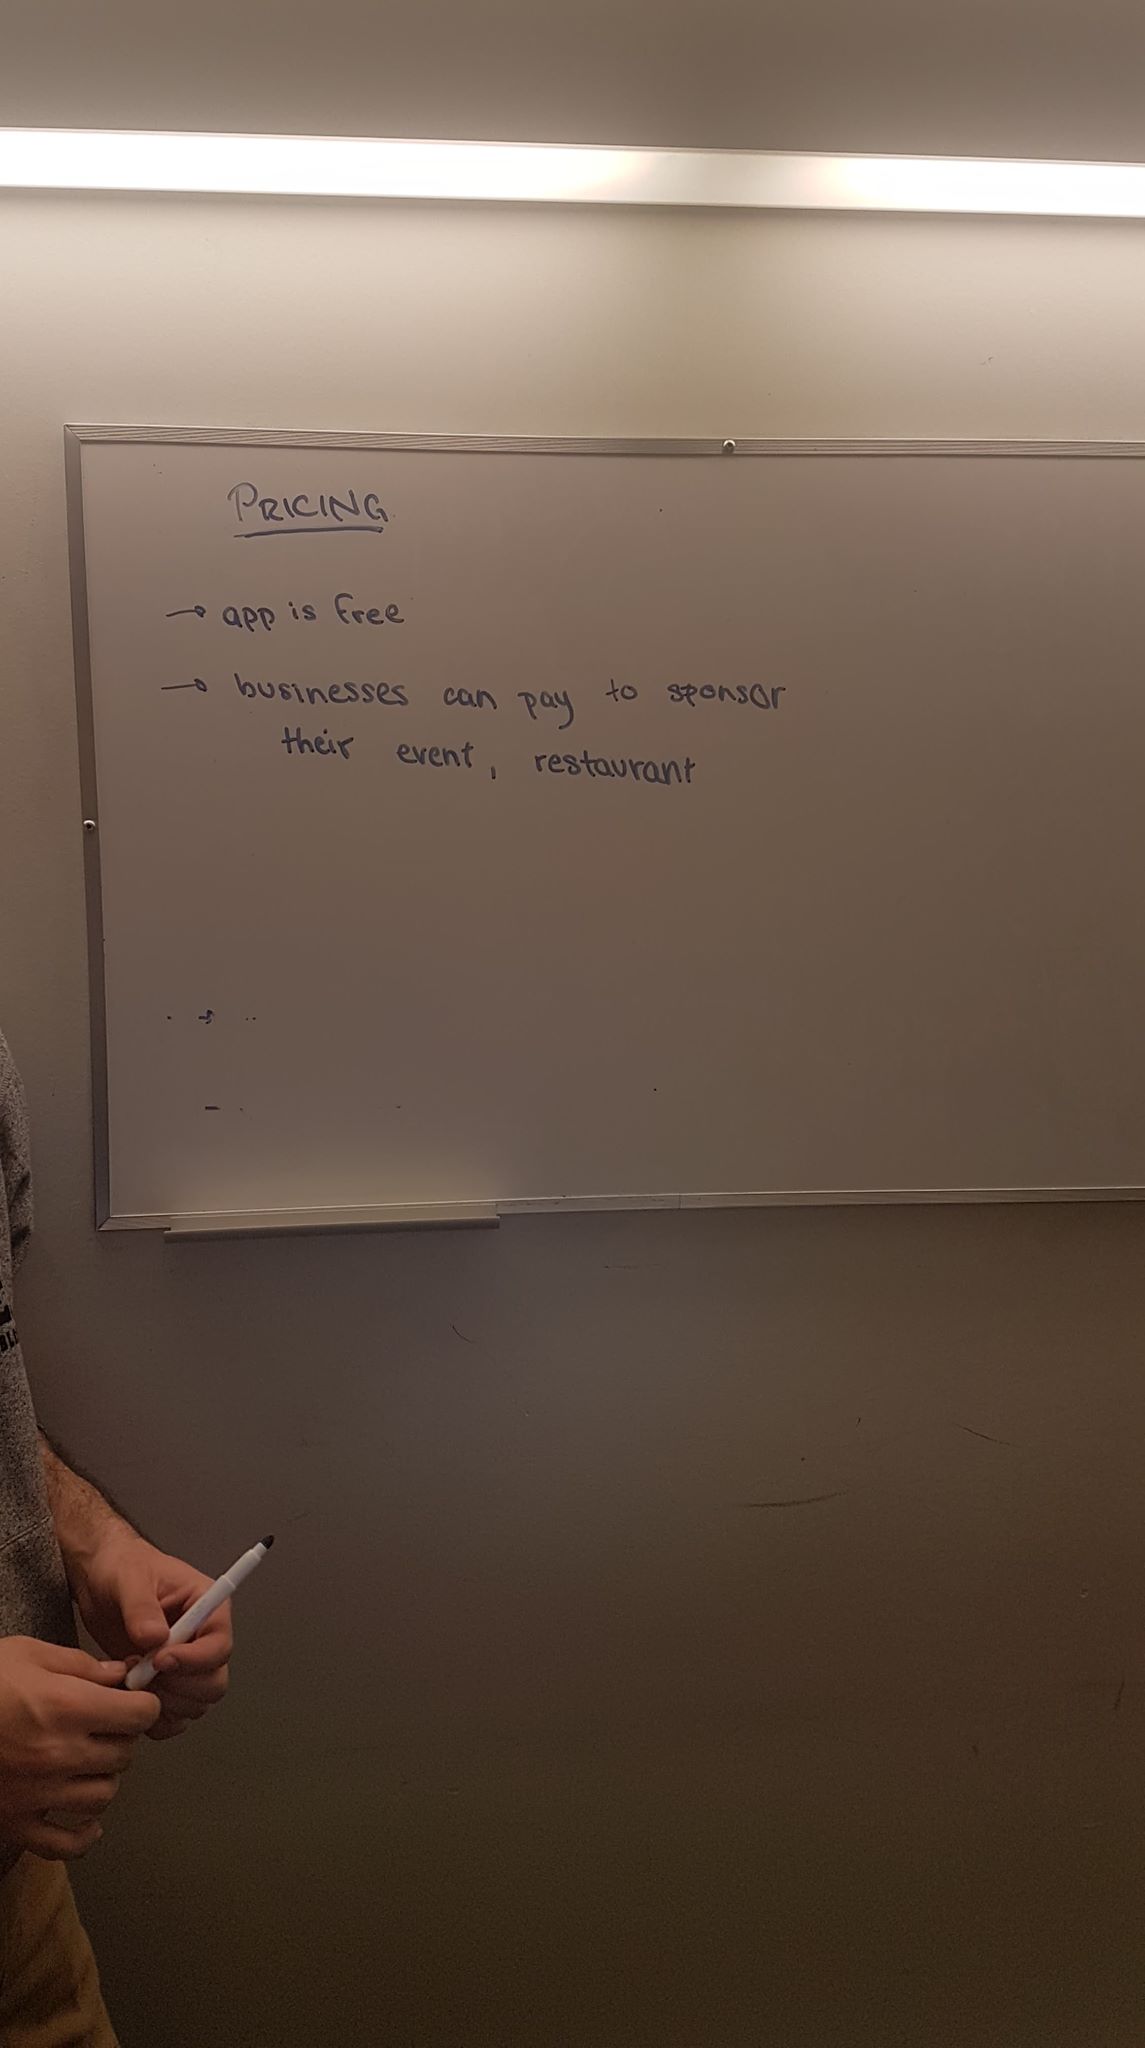 PRICING
→ app is free
→ businesses can pay to sponsor
their event, restaurant